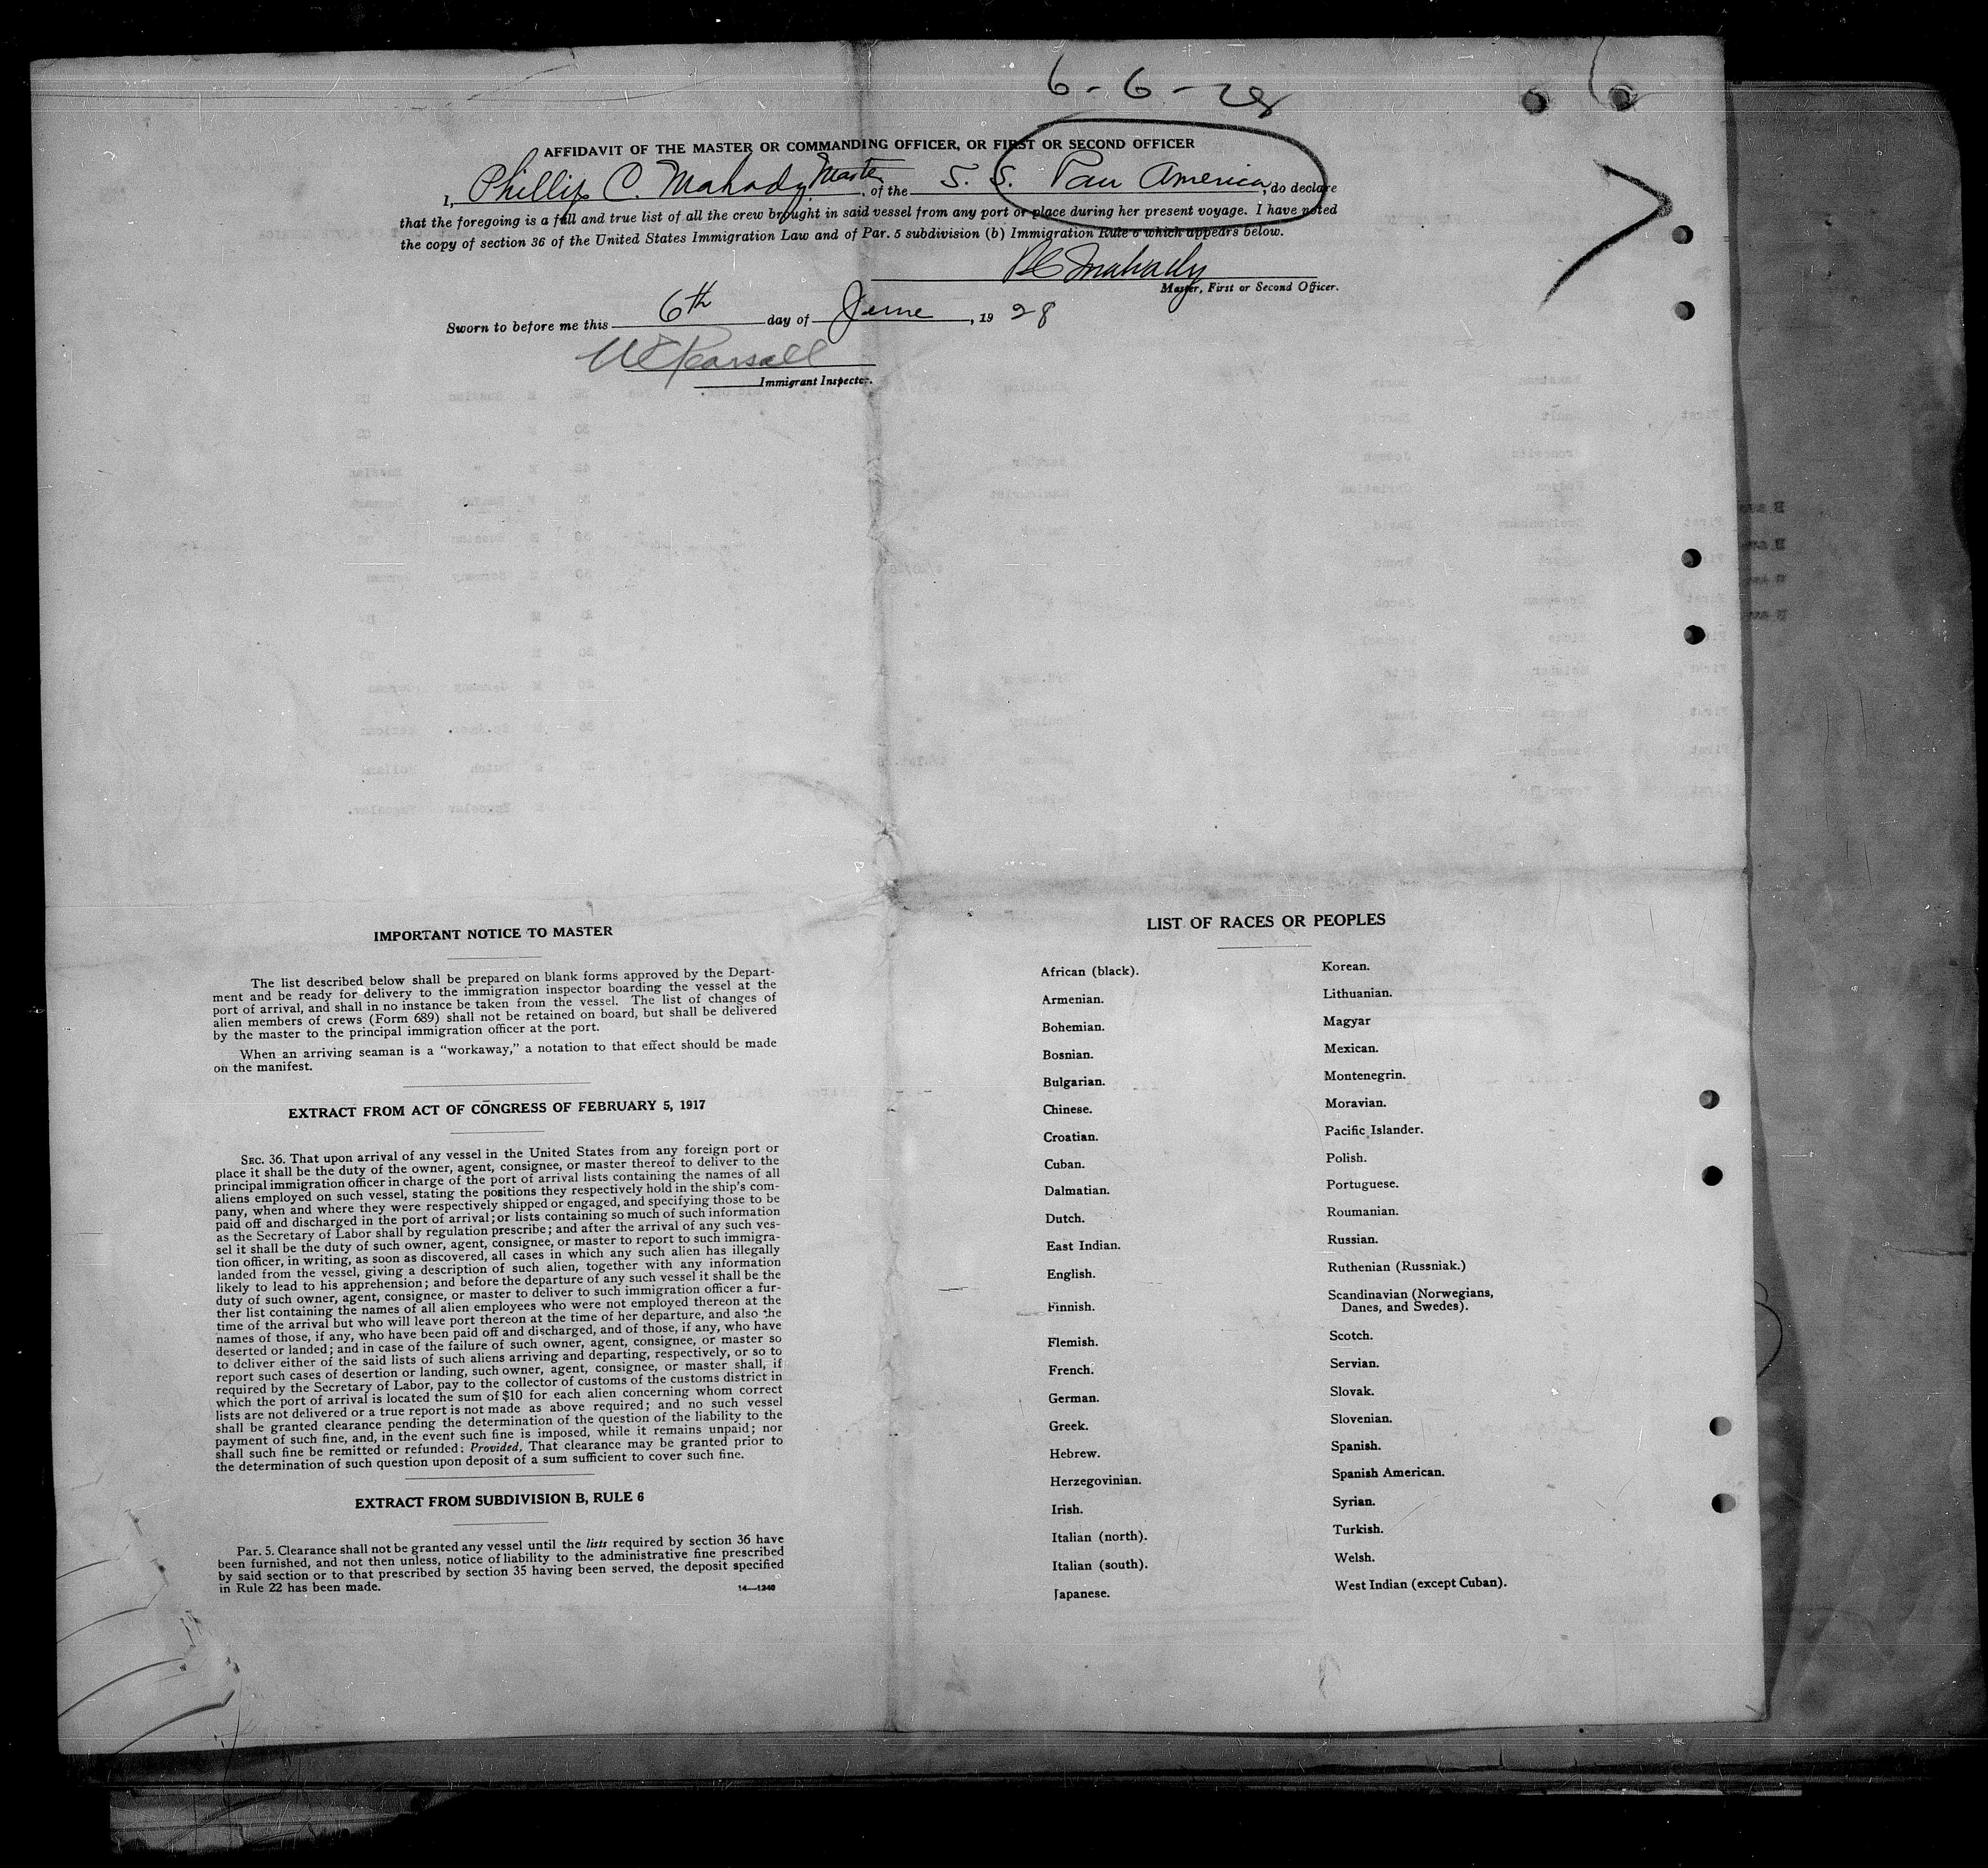 6-6-28
AFFIDAVIT OF THE MASTER OR COMMANDING OFFICER, OR FIRST OR SECOND OFFICER
I, Phillip C. Mahady, Master, of the S. S. Pan America, do declare
that the foregoing is a full and true list of all the crew brought in said vessel from any port or place during her present voyage. I have noted
the copy of section 36 of the United States Immigration Law and of Par. 5 subdivision (b) Immigration Rule 6 which appears below.
PC Mahady
Master, First or Second Officer.
Sworn to before me this 6th day of June, 1928
Immigrant Inspector.
IMPORTANT NOTICE TO MASTER
The list described below shall be prepared on blank forms approved by the Depart-
ment and be ready for delivery to the immigration inspector boarding the vessel at the
port of arrival, and shall in no instance be taken from the vessel. The list of changes of
alien members of crews (Form 689) shall not be retained on board, but shall be delivered
by the master to the principal immigration officer at the port.
When an arriving seaman is a “workaway,” a notation to that effect should be made
on the manifest.
EXTRACT FROM ACT OF CONGRESS OF FEBRUARY 5, 1917
SEC. 36. That upon arrival of any vessel in the United States from any foreign port or
place it shall be the duty of the owner, agent, consignee, or master thereof to deliver to the
principal immigration officer in charge of the port of arrival lists containing the names of all
aliens employed on such vessel, stating the positions they respectively hold in the ship's com-
pany, when and where they were respectively shipped or engaged, and specifying those to be
paid off and discharged in the port of arrival; or lists containing so much of such information
as the Secretary of Labor shall by regulation prescribe; and after the arrival of any such ves-
sel it shall be the duty of such owner, agent, consignee, or master to report to such immigra-
tion officer, in writing, as soon as discovered, all cases in which any such alien has illegally
landed from the vessel, giving a description of such alien, together with any information
likely to lead to his apprehension; and before the departure of any such vessel it shall be the
duty of such owner, agent, consignee, or master to deliver to such immigration officer a fur-
ther list containing the names of all alien employees who were not employed thereon at the
time of the arrival but who will leave port thereon at the time of her departure, and also the
names of those, if any, who have been paid off and discharged, and of those, if any, who have
deserted or landed; and in case of the failure of such owner, agent, consignee, or master so
to deliver either of the said lists of such aliens arriving and departing, respectively, or so to
report such cases of desertion or landing, such owner, agent, consignee, or master shall, if
required by the Secretary of Labor, pay to the collector of customs of the customs district in
which the port of arrival is located the sum of $10 for each alien concerning whom correct
lists are not delivered or a true report is not made as above required; and no such vessel
shall be granted clearance pending the determination of the question of the liability to the
payment of such fine, and, in the event such fine is imposed, while it remains unpaid; nor
shall such fine be remitted or refunded: Provided, That clearance may be granted prior to
the determination of such question upon deposit of a sum sufficient to cover such fine.
EXTRACT FROM SUBDIVISION B, RULE 6
Par. 5. Clearance shall not be granted any vessel until the lists required by section 36 have
been furnished, and not then unless, notice of liability to the administrative fine prescribed
by said section or to that prescribed by section 35 having been served, the deposit specified
in Rule 22 has been made.
14—1240
LIST OF RACES OR PEOPLES
African (black).
Armenian.
Bohemian.
Bosnian.
Bulgarian.
Chinese.
Croatian.
Cuban.
Dalmatian.
Dutch.
East Indian.
English.
Finnish.
Flemish.
French.
German.
Greek.
Hebrew.
Herzegovinian.
Irish.
Italian (north).
Italian (south).
Japanese.
Korean.
Lithuanian.
Magyar
Mexican.
Montenegrin.
Moravian.
Pacific Islander.
Polish.
Portuguese.
Roumanian.
Russian.
Ruthenian (Russniak.)
Scandinavian (Norwegians,
Danes, and Swedes).
Scotch.
Servian.
Slovak.
Slovenian.
Spanish.
Spanish American.
Syrian.
Turkish.
Welsh.
West Indian (except Cuban).